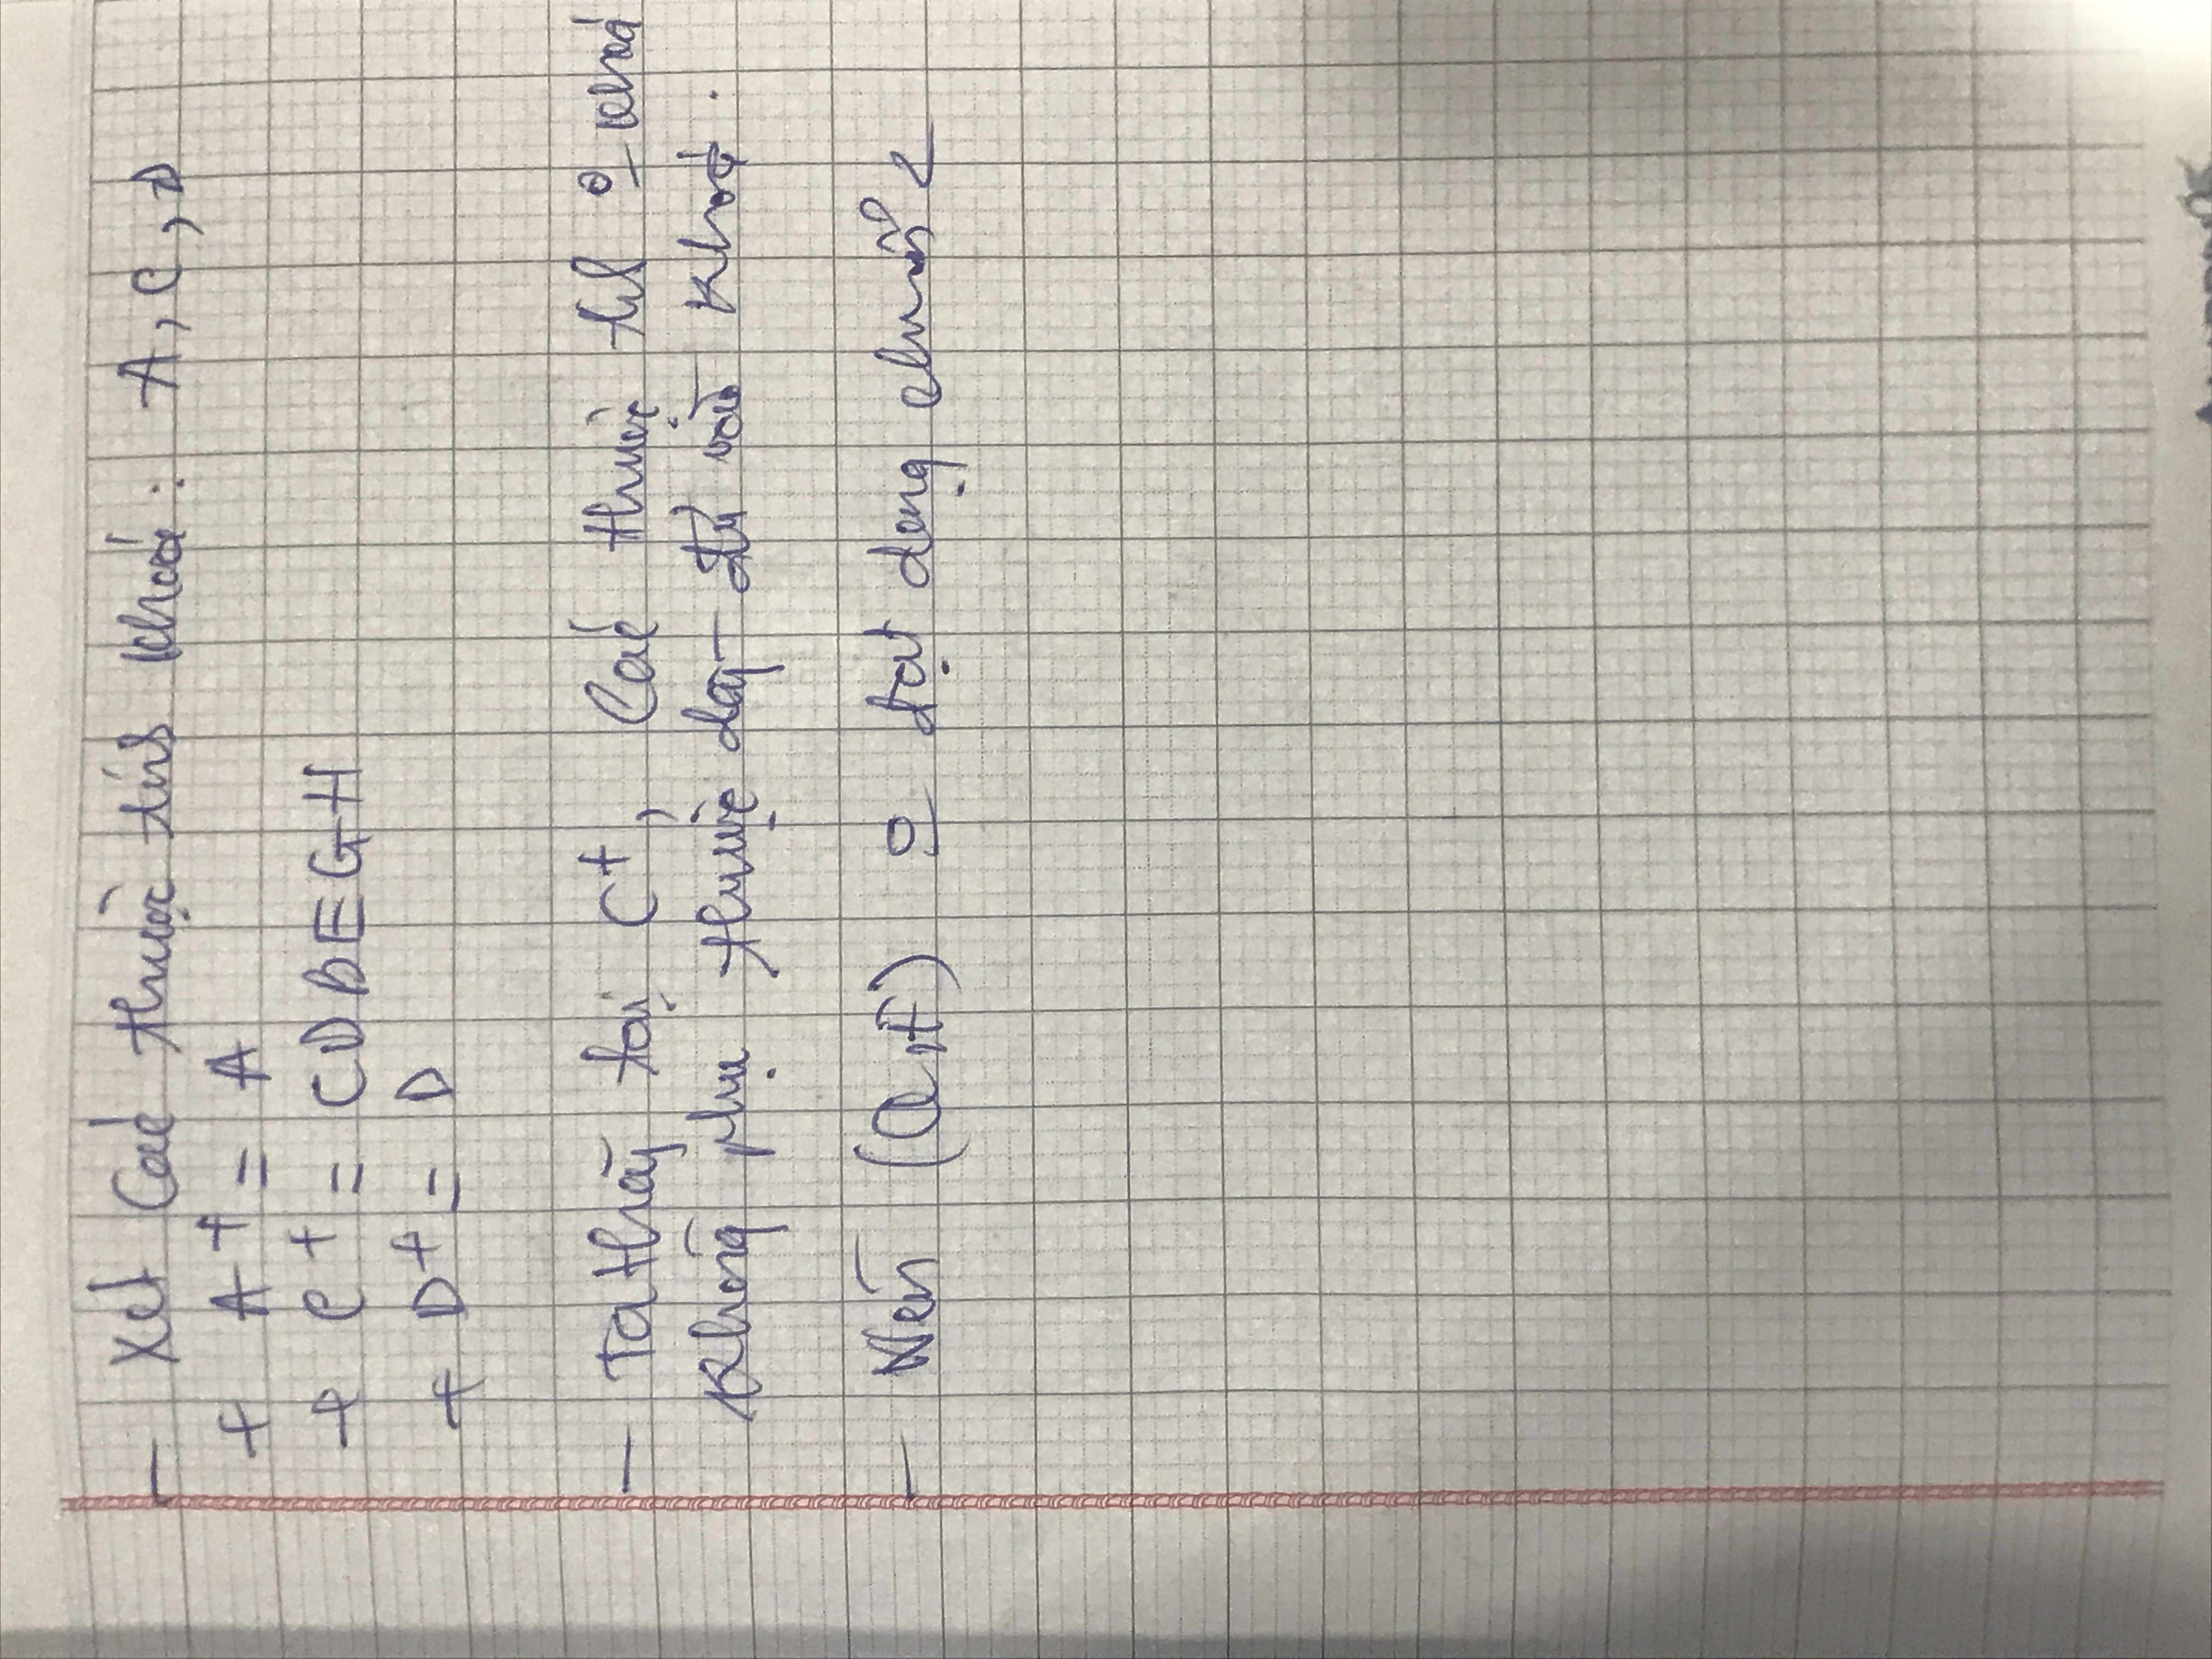 - Xét Các thuộc tính khoá: A, C, D
+ A+ = A
+ C+ = CDBEGH
+ D+ = D
- Ta thấy tại C+, Các thuộc tính o khoá
không phụ thuộc đầy đủ vào khoá.
- Nên (Q,F) o đạt dạng chuẩn 2